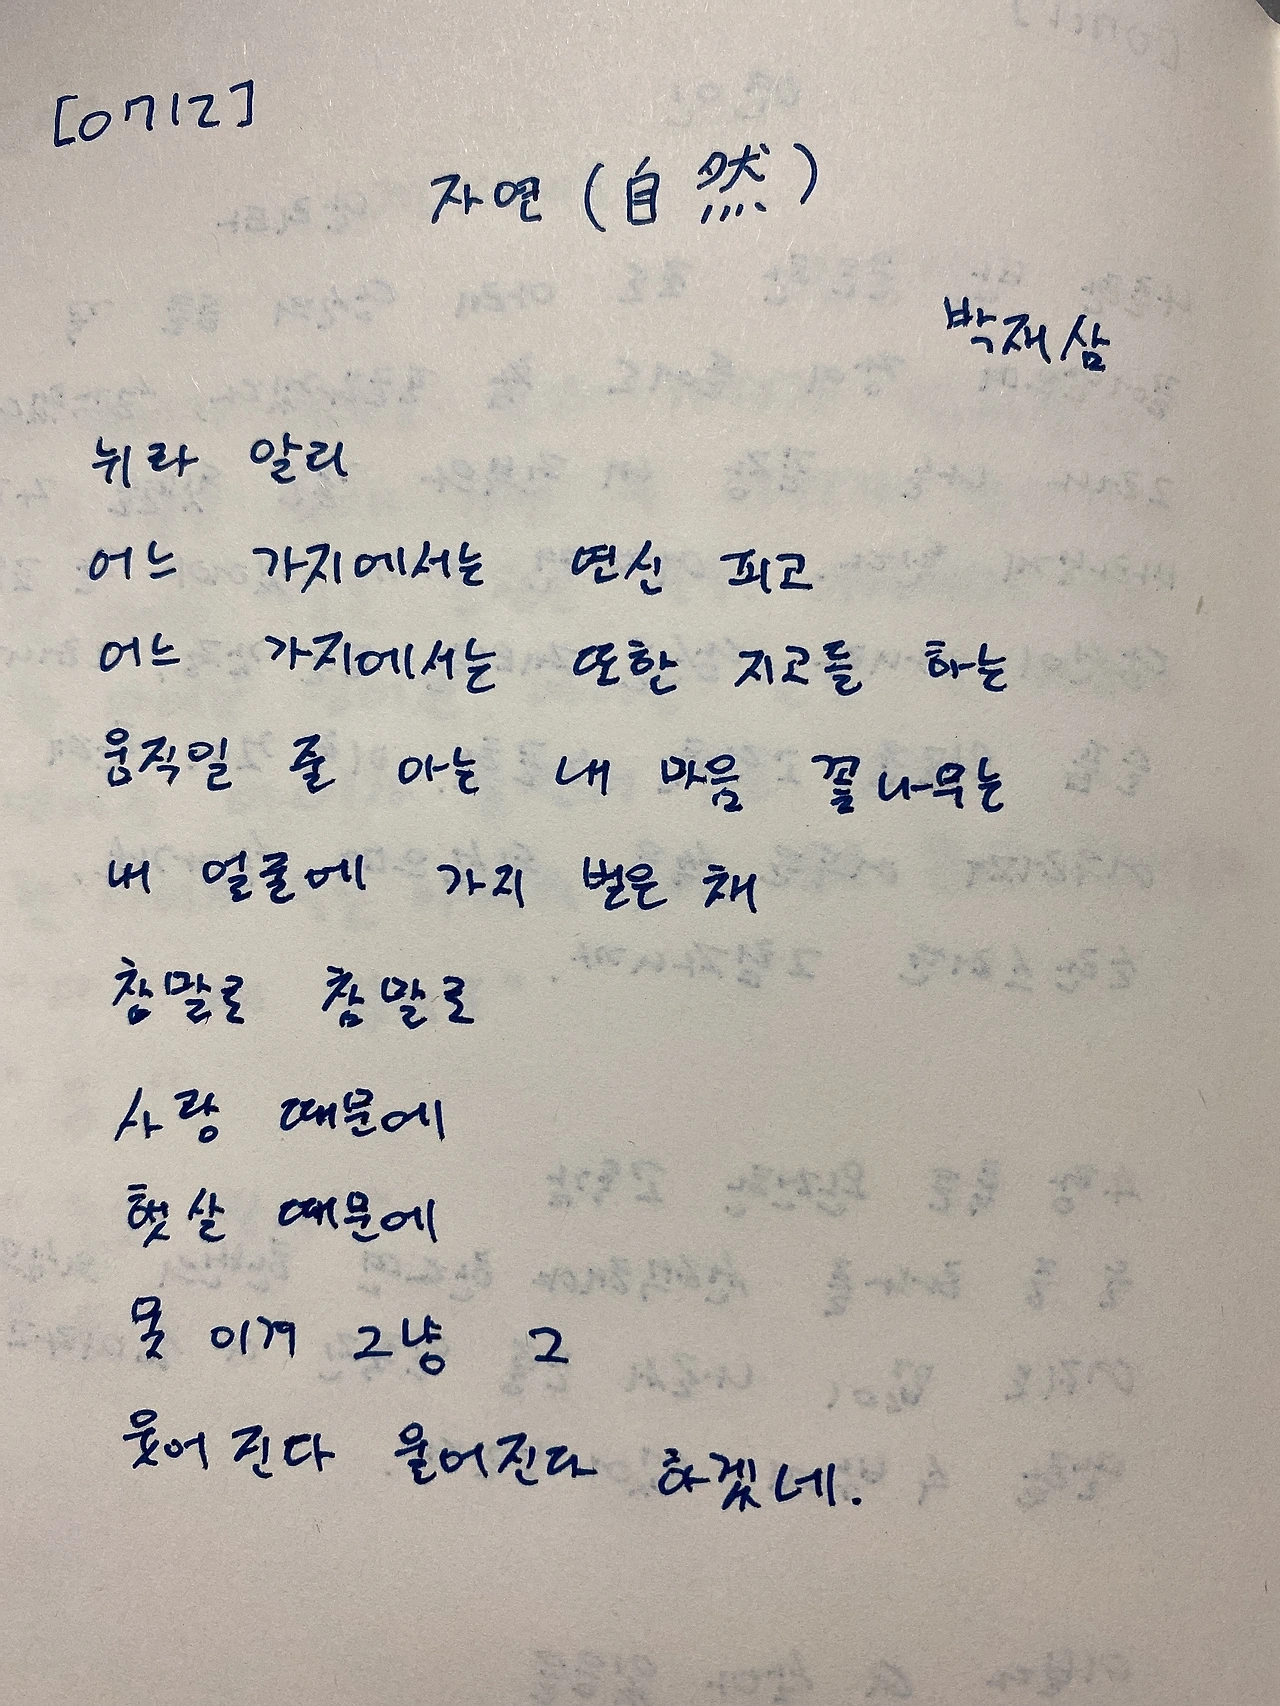 [0712]
자연 (自然)
박재삼
뉘라 알리
어느 가지에서는 연신 피고
어느 가지에서는 또한 지고들 하는
움직일 줄 아는 내 마음 꽃나무는
내 얼굴에 가지 벋은 채
참말로 참말로
사랑 때문에
햇살 때문에
못 이겨 그냥 그
웃어진다 울어진다 하겠네.